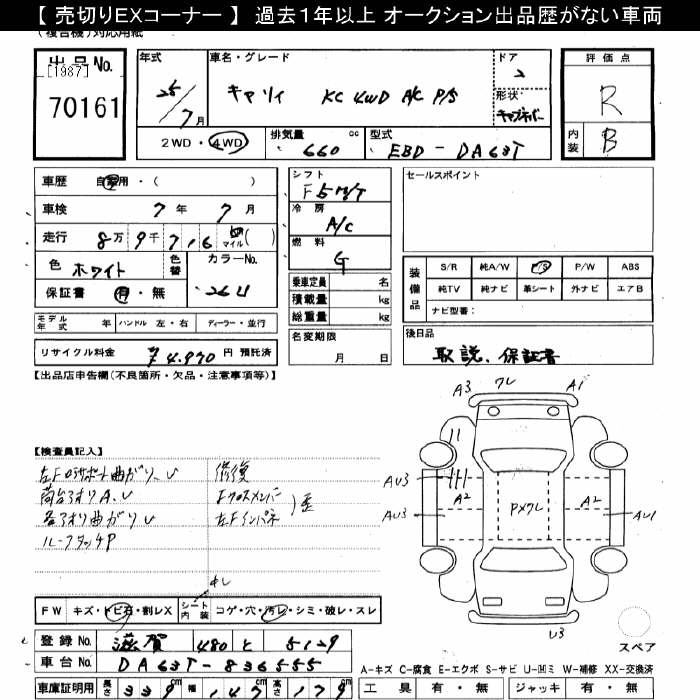 【 売切りEXコーナー 】 過去1年以上 オークション出品歴がない車両
(複合機)対応用紙
出品No.
[1987]
70161
年式
25/7月
車名・グレード
キャリィ KC 4WD A/C P/S
ドア
2
形状
キャブオーバー
評価点
R
内装
B
2WD・4WD
排気量
660 cc
型式
EBD-DA63T
車歴 自家用・( )
車検 7年 7月
走行 8万9千716 マイル( )
色 ホワイト
色替
カラーNo.
26U
保証書 有・無
モデル年式 年 ハンドル 左・右 ディーラー・並行
リサイクル料金 ¥4,970円 預託済
シフト
F5M/T
冷房
A/C
燃料
G
乗車定員 名
積載量 kg
総重量 kg
名変期限
月 日
セールスポイント
装備品
S/R 純A/W P/S P/W ABS
純TV 純ナビ 革シート 外ナビ エアB
ナビ型番:
後日品
取説、保証書
【出品店申告欄(不良箇所・欠品・注意事項等)】
【検査員記入】
左Fロアサポート曲がり、U
荷台アオリA、U
各アオリ曲がりU
ルーフタッチP
修復
Fクロスメンバー
左Fインパネ
歪
A3 ワレ A1
AU3
A2
AU3
PXワレ
A2
AU1
U3
スペア
FW キズ・トビ石・割レX
シート内装 コゲ・穴・汚レ・シミ・破レ・スレ
登録No. 滋賀 480 と 5129
車台No. DA63T-836555
車庫証明用 長さ 339cm 幅 147cm 高さ 179cm
A-キズ C-腐食 E-エクボ S-サビ U-凹ミ W-補修 XX-交換済
工具 有・無 ジャッキ 有・無